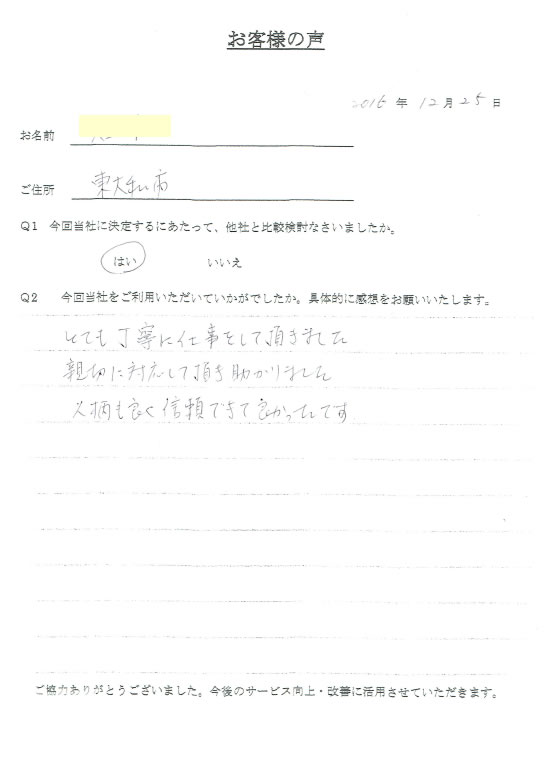 お客様の声
2016 年 12 月 25 日
お名前
ご住所 東大和市
Q1 今回当社に決定するにあたって、他社と比較検討なさいましたか。
はい いいえ
Q2 今回当社をご利用いただいていかがでしたか。具体的に感想をお願いいたします。
とても丁寧に仕事をして頂きました
親切に対応して頂き助かりました
人柄も良く信頼できて良かったです
ご協力ありがとうございました。今後のサービス向上・改善に活用させていただきます。